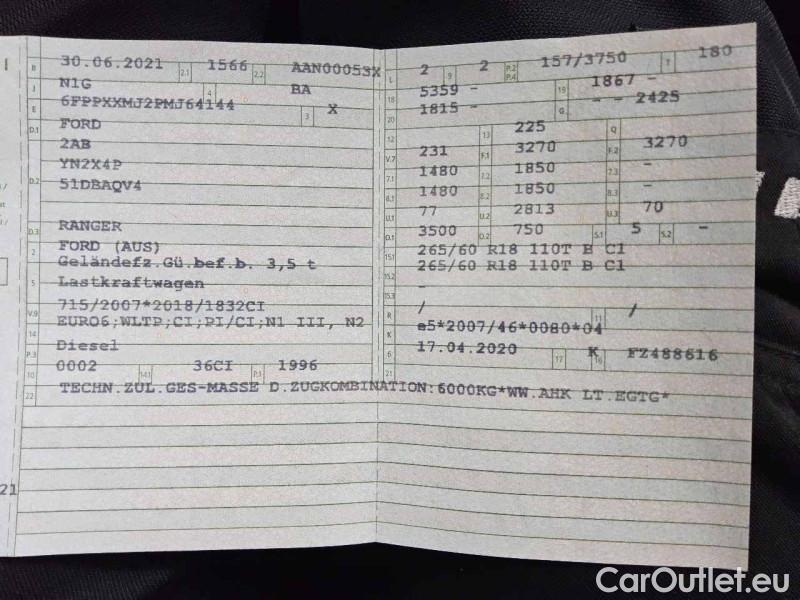 B 30.06.2021 2.1 1566 2.2 AAN00053X
J N1G 4 BA
E 6FPPXXMJ2PMJ64144 3 X
D.1 FORD
2AB
D.2 YN2X4P
51DBAQV4
D.3 RANGER
2 FORD (AUS)
Geländefz.Gü.bef.b. 3,5 t
5 Lastkraftwagen
V.9 715/2007*2018/1832CI
14 EURO6;WLTP;CI;PI/CI;N1 III, N2
P.3 Diesel
10 0002 14.1 36CI P.1 1996
22 TECHN.ZUL.GES-MASSE D.ZUGKOMBINATION:6000KG*WW.AHK LT.EGTG*
L 2 9 2 P.2 P.4 157/3750 T 180
18 5359 - 19 1867 -
20 1815 - G - - 2425
12 13 225 Q
V.7 231 F.1 3270 F.2 3270
7.1 1480 7.2 1850 7.3 -
8.1 1480 8.2 1850 8.3 -
U.1 77 U.2 2813 U.3 70
O.1 3500 O.2 750 S.1 5 S.2 -
15.1 265/60 R18 110T B C1
15.2 265/60 R18 110T B C1
15.3 -
R / 11 /
K e5*2007/46*0080*04
6 17.04.2020 17 K 16 FZ488616
21
21
CarOutlet.eu